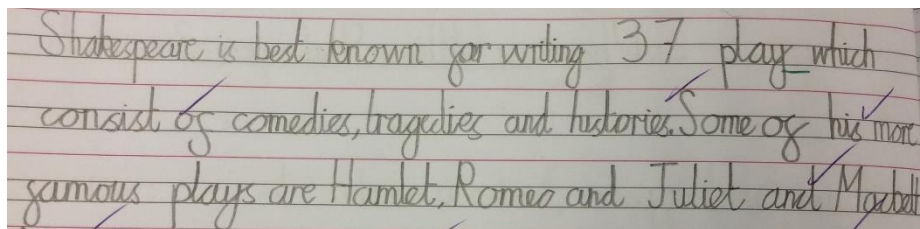 Shakespeare is best known for writing 37 play which
consist of comedies, tragedies and histories. Some of his more
famous plays are Hamlet, Romeo and Juliet and Macbeth